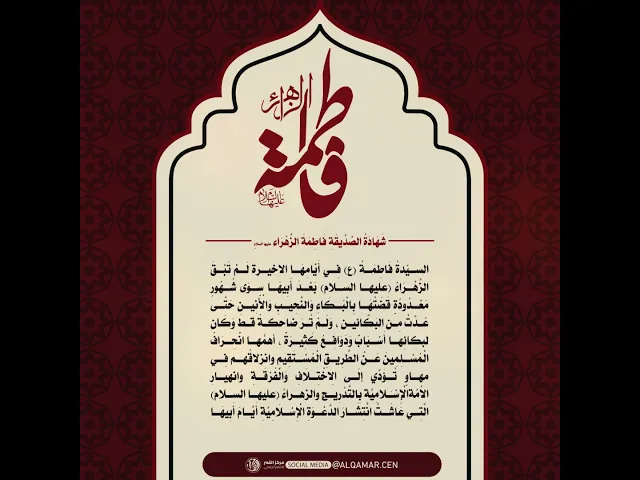 فاطمة
الزهراء
عليها السلام
شَهَادَةُ الصِّدِّيقَة فَاطمَة الزَّهْرَاء عليها السلام
السيّدةُ فاطمَةُ (ع) في أيّامها الاخيرة لَمْ تَبْقَ
الزهراءُ (عليها السلام) بَعْدَ أبيها سوَى شهُور
مَعْدُودَة قَضَتْها بالْبُكَاء والنَّحيب والْأنين حَتّى
عُدَّتْ من البكّائين ، ولَمْ تُرَ ضاحكَةً قط وكان
لبكائها أسْبَابٌ ودَوَافعُ كَثيرَة ، أهَمُّها انْحرَافُ
الْمُسْلمين عَنْ الطريق الْمُسْتَقيم وانْزلاقهُم في
مهاوٍ تُؤَدِّي إلى الاخْتلاف والْفُرْقَة وانهيار
الأمّةالإسْلاميّة بالتَّدْريج والزهراءُ (عليها السلام)
الَّتي عَاشَتْ انْتشَارَ الدَّعْوَة الْإسْلاميَّة أيّامَ أبيها
مركز القمر SOCIAL MEDIA @ALQAMAR.CEN